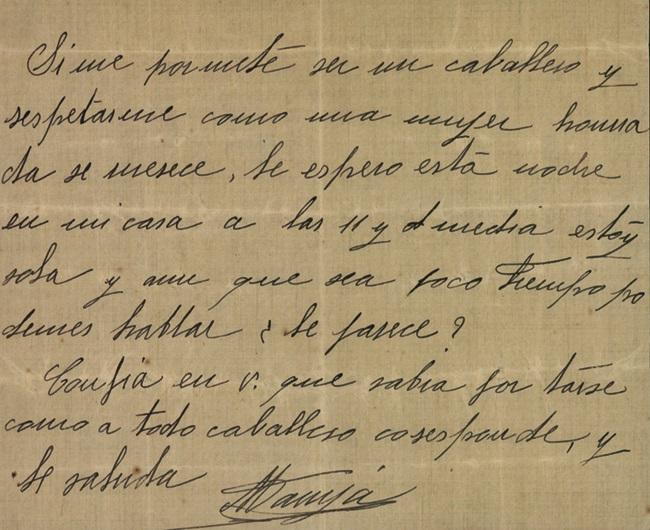 Si me pormeté ser un caballero y
respetarme como una mujer honra
da se merece, le espero está noche
en mi casa a las 11 y d media estóy
sola y aun que sea poco tiempo po
demos hablar ¿ le parece?
Confia en V. que sabra por tarse
como a todo caballero coresponde, y
le saluda